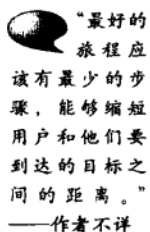 “最好的
旅程应
该有最少的步
骤，能够缩短
用户和他们要
到达的目标之
间的距离。”
——作者不详